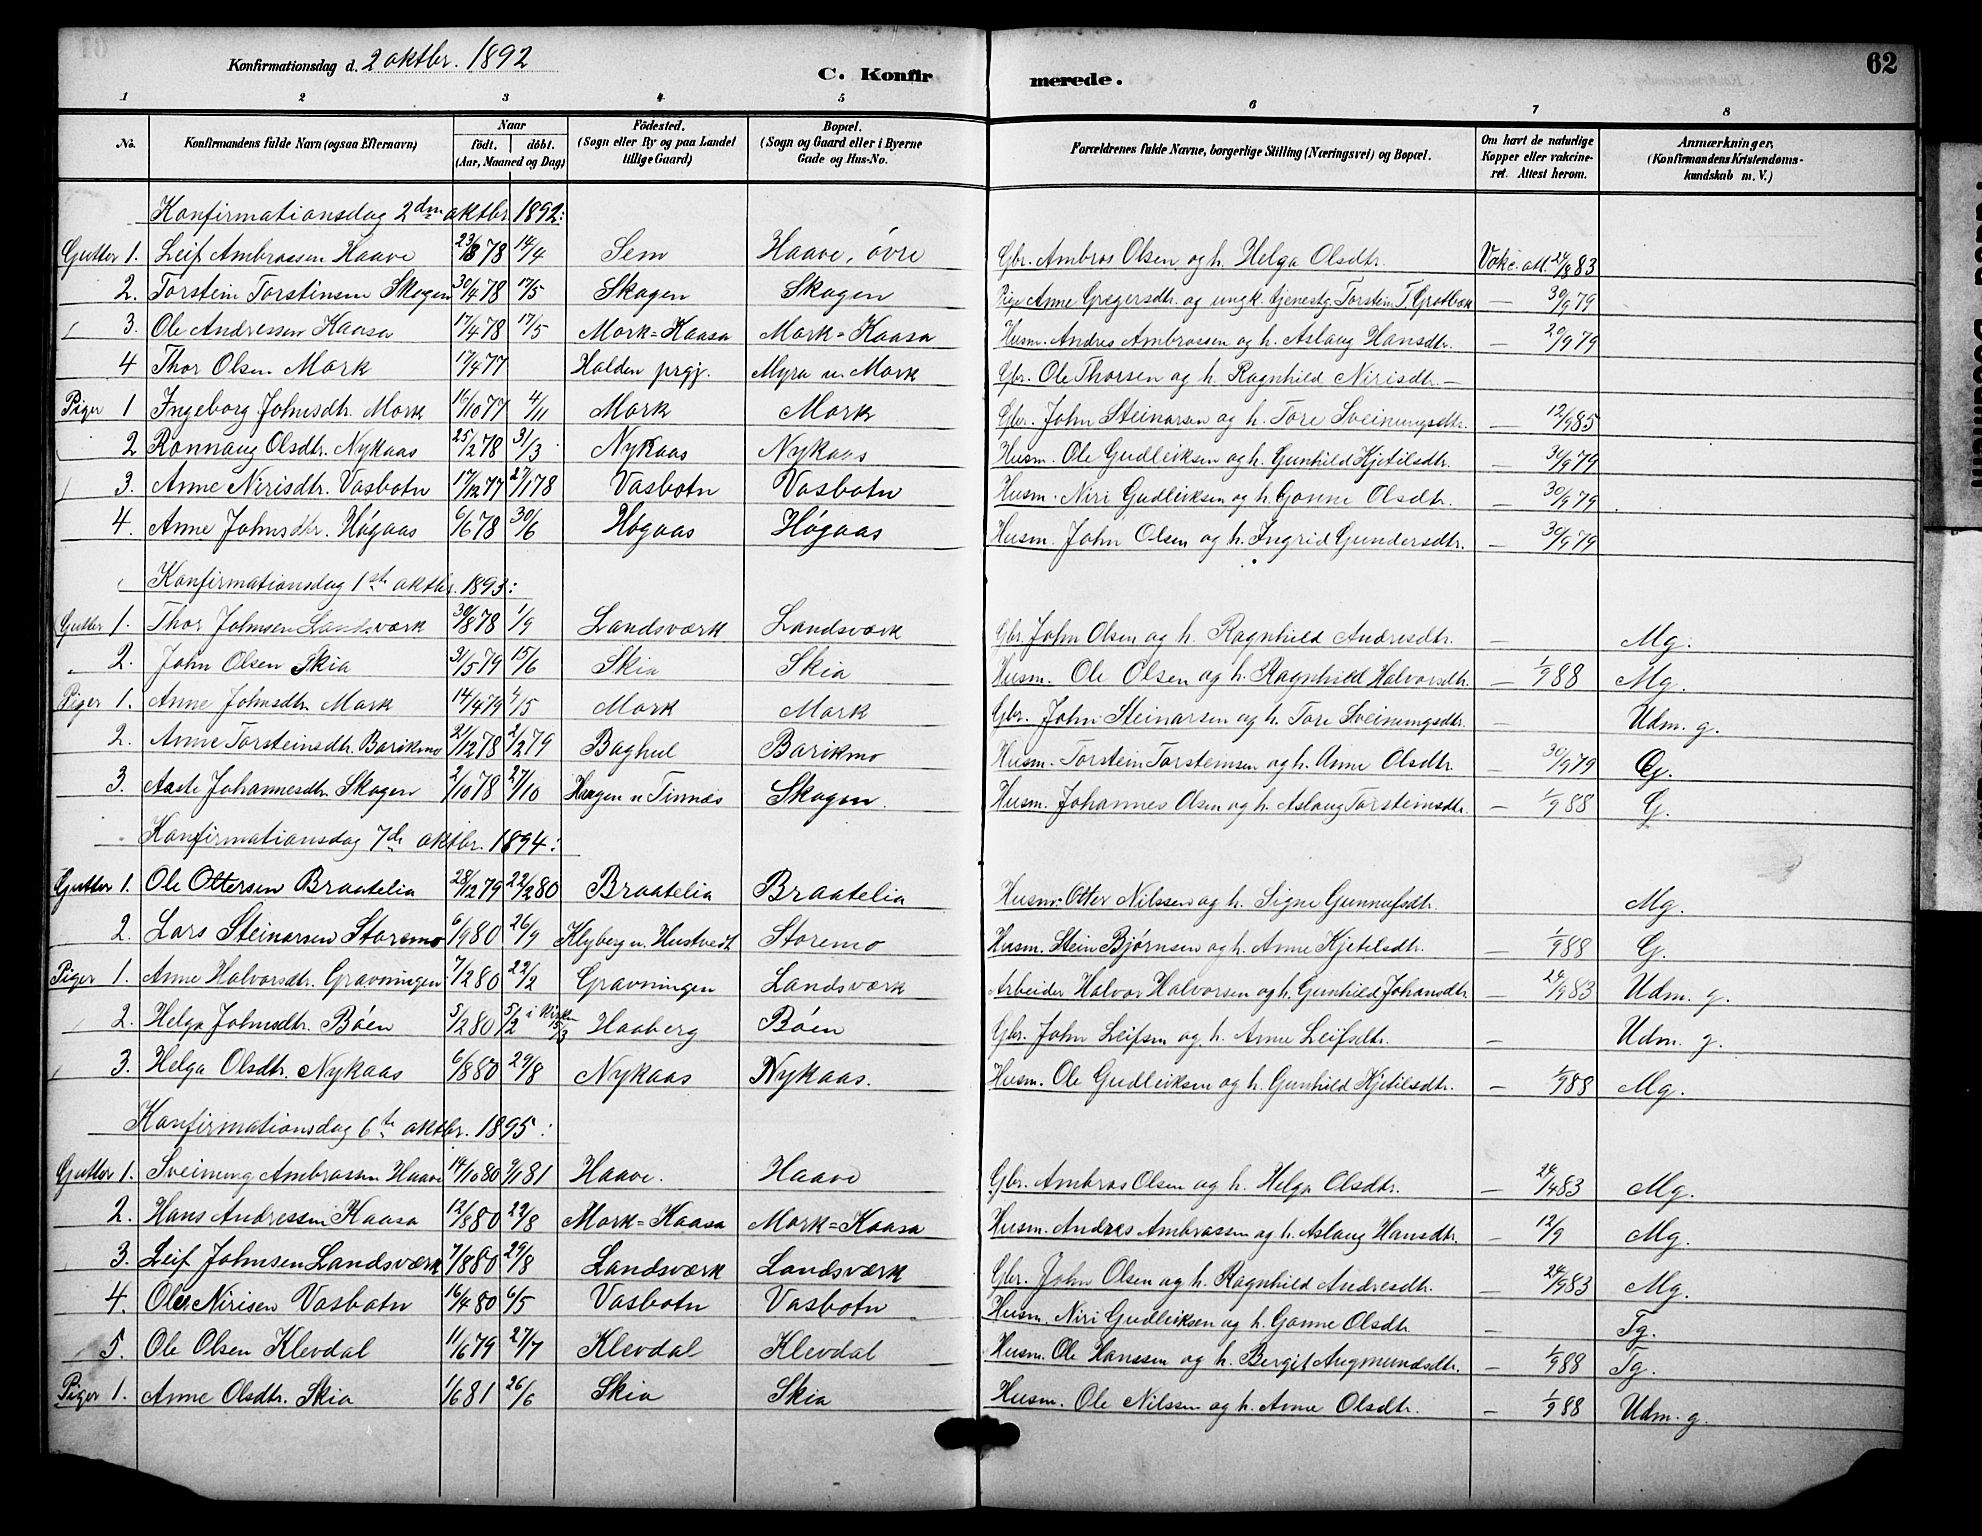 Konfirmationsdag d. 2 oktbr. 1892
C. Konfirmerede.
62
1 2 3 4 5 6 7 8
No. Konfirmandens fulde Navn (ogsaa Efternavn) Naar födt. döbt. (Aar, Maaned og Dag) Födested. (Sogn eller By og paa Landet tillige Gaard) Bopæl. (Sogn og Gaard eller i Byerne Gade og Hus-No. Forældrenes fulde Navne, borgerlige Stilling (Næringsvei) og Bopæl. Om havt de naturlige Kopper eller vakcineret. Attest herom. Anmærkninger. (Konfirmandens Kristendomskundskab m. V.)
Konfirmationsdag 2den oktbr. 1892:
Gutter 1. Leif Ambrossen Haave 23/3 78 14/4 Sem Haave, övre Gbr. Ambros Olsen og h. Helga Olsdtr. Vakc. att. 24/9 83
2. Torstein Torstinsen Skogen 30/4 78 17/5 Skogen Skogen Pige Anne Gregersdtr. og ungk. tjenestg. Torstein T. Grotbæk — 30/9 79
3. Ole Andressen Kaasa 17/4 78 17/5 Mork=Kaasa Mork=Kaasa Husm. Andres Ambrossen og h. Aslaug Hansdtr. — 20/9 79
4 Thor Olsen Mork 17/4 77 Holden prgj. Myra u. Mork Gbr. Ole Thorsen og h. Ragnhild Nirisdtr. —
Piger 1 Ingeborg Johnsdtr. Mork 16/10 77 4/11 Mork Mork Gbr. John Steinarsen og h. Tore Sveinungsdtr. — 12/9 85
2 Rønnaug Olsdtr. Nykaas 25/2 78 31/3 Nykaas Nykaas Husm. Ole Gudleiksen og h. Gunhild Kjetilsdtr. — 30/9 79
3. Anne Nirisdtr. Vasbotn 17/12 77 27/1 78 Vasbotn Vasbotn Husm. Niri Gudleiksen og h. Gonne Olsdtr. — 30/9 79
4. Anne Johnsdtr. Høgaas 6/6 78 30/6 Høgaas Høgaas Husm. John Olsen og h. Ingrid Gundersdtr. — 30/9 79
Konfirmationsdag 1ste oktbr. 1893:
Gutter 1. Thor Johnsen Landsværk 30/8 78 1/9 Landsværk Landsværk Gbr. John Olsen og h. Ragnhild Andresdtr. — Mg.
2. John Olsen Skia 31/5 79 15/6 Skia Skia Husm. Ole Olsen og h. Ragnhild Halvorsdtr. — 1/9 88 Mg.
Piger 1. Anne Johnsdtr. Mork 14/4 79 4/5 Mork Mork Gbr. John Steinarsen og h. Tore Sveinungsdtr. — Udm. g.
2. Anne Torsteinsdtr. Barikmo 21/12 78 2/2 79 Baghul Barikmo Husm. Torstein Torsteinsen og h. Anne Olsdtr. — 30/9 79 G.
3. Aaste Johannesdtr. Skogen 2/10 78 27/10 Haagen u Tinnæs Skogen. Husm. Johannes Olsen og h. Aslaug Torsteinsdtr. — 1/9 88 G.
Konfirmationsdag 7de oktbr. 1894:
Gutter 1. Ole Ottersen Braatelia 28/12 79 22/2 80 Braatelia Braatelia Husm. Otter Nilssen og h. Signe Gunnufsdtr. Mg.
2. Lars Steinarsen Storemo 6/9 80 26/9 Klyberg u. Hustvedt Storemo Husm. Stein Bjørnsen og h. Anne Kjetilsdtr. — 1/9 88 G.
Piger 1. Anne Halvorsdtr. Gravningen 7/2 80 22/2 Gravningen Landsværk Arbeider Halvor Halvorsen og h. Gunhild Johansdtr. — 24/9 83 Udm. g.
2. Helga Johnsdtr. Bøen 5/2 80 5/2 i Kirken 15/3 Haaberg Bøen Gbr. John Leifsen og h. Anne Leifsdtr. — Udm. g.
3. Helga Olsdtr. Nykaas 6/8 80 29/8 Nykaas Nykaas. Husm. Ole Gudleiksen og h. Gunhild Kjetilsdtr. — 1/9 88 Mg.
Konfirmationsdag 6te oktbr. 1895:
Gutter 1. Sveinung Ambrossen Haave 14/10 80 9/1 81 Haave. Haave Gbr. Ambros Olsen og h. Helga Olsdtr. — 24/4 83 Mg.
2. Hans Andressen Kaasa 12/8 80 22/8 Mork=Kaasa Mork=Kaasa Husm. Andres Ambrossen og h. Aslaug Hansdtr. — 12/9 Mg.
3. Leif Johnsen Landsværk 7/8 80 29/8 Landsværk Landsværk Gbr. John Olsen og h. Ragnhild Andresdtr. — 24/9 83 Mg.
4. Nirisen Vasbotn 16/4 80 6/5 Vasbotn Vasbotn Husm. Niri Gudleiksen og h. Gonne Olsdtr. — Tg.
5. Ole Olsen Klevdal 11/6 79 27/7 Klevdal Klevdal Husm. Ole Hanssen og h. Bergit Augmundsdtr. — 1/9 88 Tg.
Piger 1. Anne Olsdtr. Skia 1/6 81 26/6 Skia Skia Husm. Ole Nilssen og h. Anne Olsdtr. — 1/9 88 Udm. g.